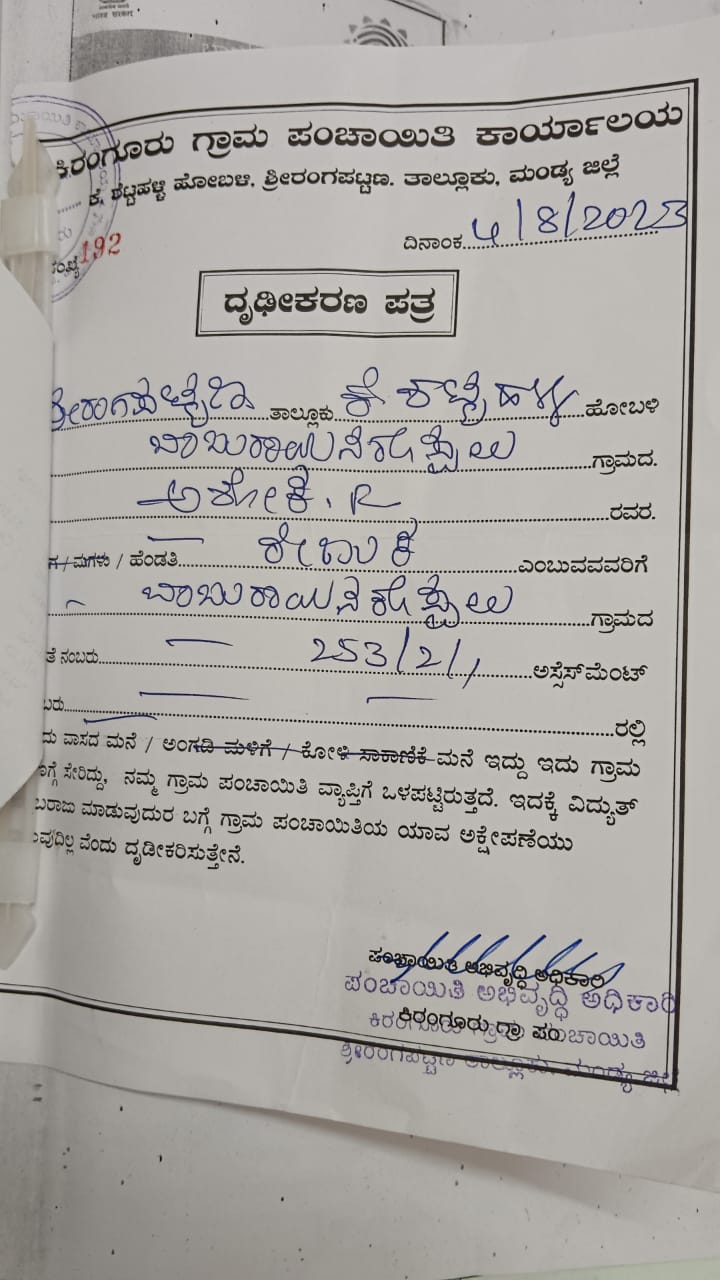 भारत सरकार
ಕಿರಂಗೂರು ಗ್ರಾಮ ಪಂಚಾಯಿತಿ ಕಾರ್ಯಾಲಯ
ಕೆ. ಶೆಟ್ಟಹಳ್ಳಿ ಹೋಬಳಿ, ಶ್ರೀರಂಗಪಟ್ಟಣ. ತಾಲ್ಲೂಕು, ಮಂಡ್ಯ ಜಿಲ್ಲೆ
ದಿನಾಂಕ 4/8/2023
ಸಂಖ್ಯೆ 192
ದೃಢೀಕರಣ ಪತ್ರ
ತಾಲ್ಲೂಕು ಕೆ ಶೆಟ್ಟಹಳ್ಳಿ ಹೋಬಳಿ
ಗ್ರಾಮದ.
ಅಶೋಕ. R ರವರ.
ಗ / ಮಗಳು / ಹೆಂಡತಿ ಎಂಬುವವವರಿಗೆ
ಗ್ರಾಮದ
ತೆ ನಂಬರು 253/2/1 ಅಸ್ಸೆಸ್‌ಮೆಂಟ್
ಬರು ರಲ್ಲಿ
ದು ವಾಸದ ಮನೆ / ಅಂಗಡಿ ಮಳಿಗೆ / ಕೋಳಿ ಸಾಕಾಣಿಕೆ ಮನೆ ಇದ್ದು ಇದು ಗ್ರಾಮ
ಗ್ಗೆ ಸೇರಿದ್ದು, ನಮ್ಮ ಗ್ರಾಮ ಪಂಚಾಯಿತಿ ವ್ಯಾಪ್ತಿಗೆ ಒಳಪಟ್ಟಿರುತ್ತದೆ. ಇದಕ್ಕೆ ವಿದ್ಯುತ್
ಬರಾಜು ಮಾಡುವುದುರ ಬಗ್ಗೆ ಗ್ರಾಮ ಪಂಚಾಯಿತಿಯ ಯಾವ ಅಕ್ಷೇಪಣೆಯು
ವುದಿಲ್ಲವೆಂದು ದೃಡೀಕರಿಸುತ್ತೇನೆ.
ಪಂಚಾಯಿತಿ ಅಭಿವೃದ್ಧಿ ಅಧಿಕಾರಿ
ಪಂಚಾಯಿತಿ ಅಭಿವೃದ್ಧಿ ಅಧಿಕಾರಿ
ಕಿರಂಗೂರು ಗ್ರಾ ಪಂಚಾಯಿತಿ
ಶ್ರೀರಂಗಪಟ್ಟಣ ತಾಲ್ಲೂಕು, ಮಂಡ್ಯ ಜಿಲ್ಲೆ